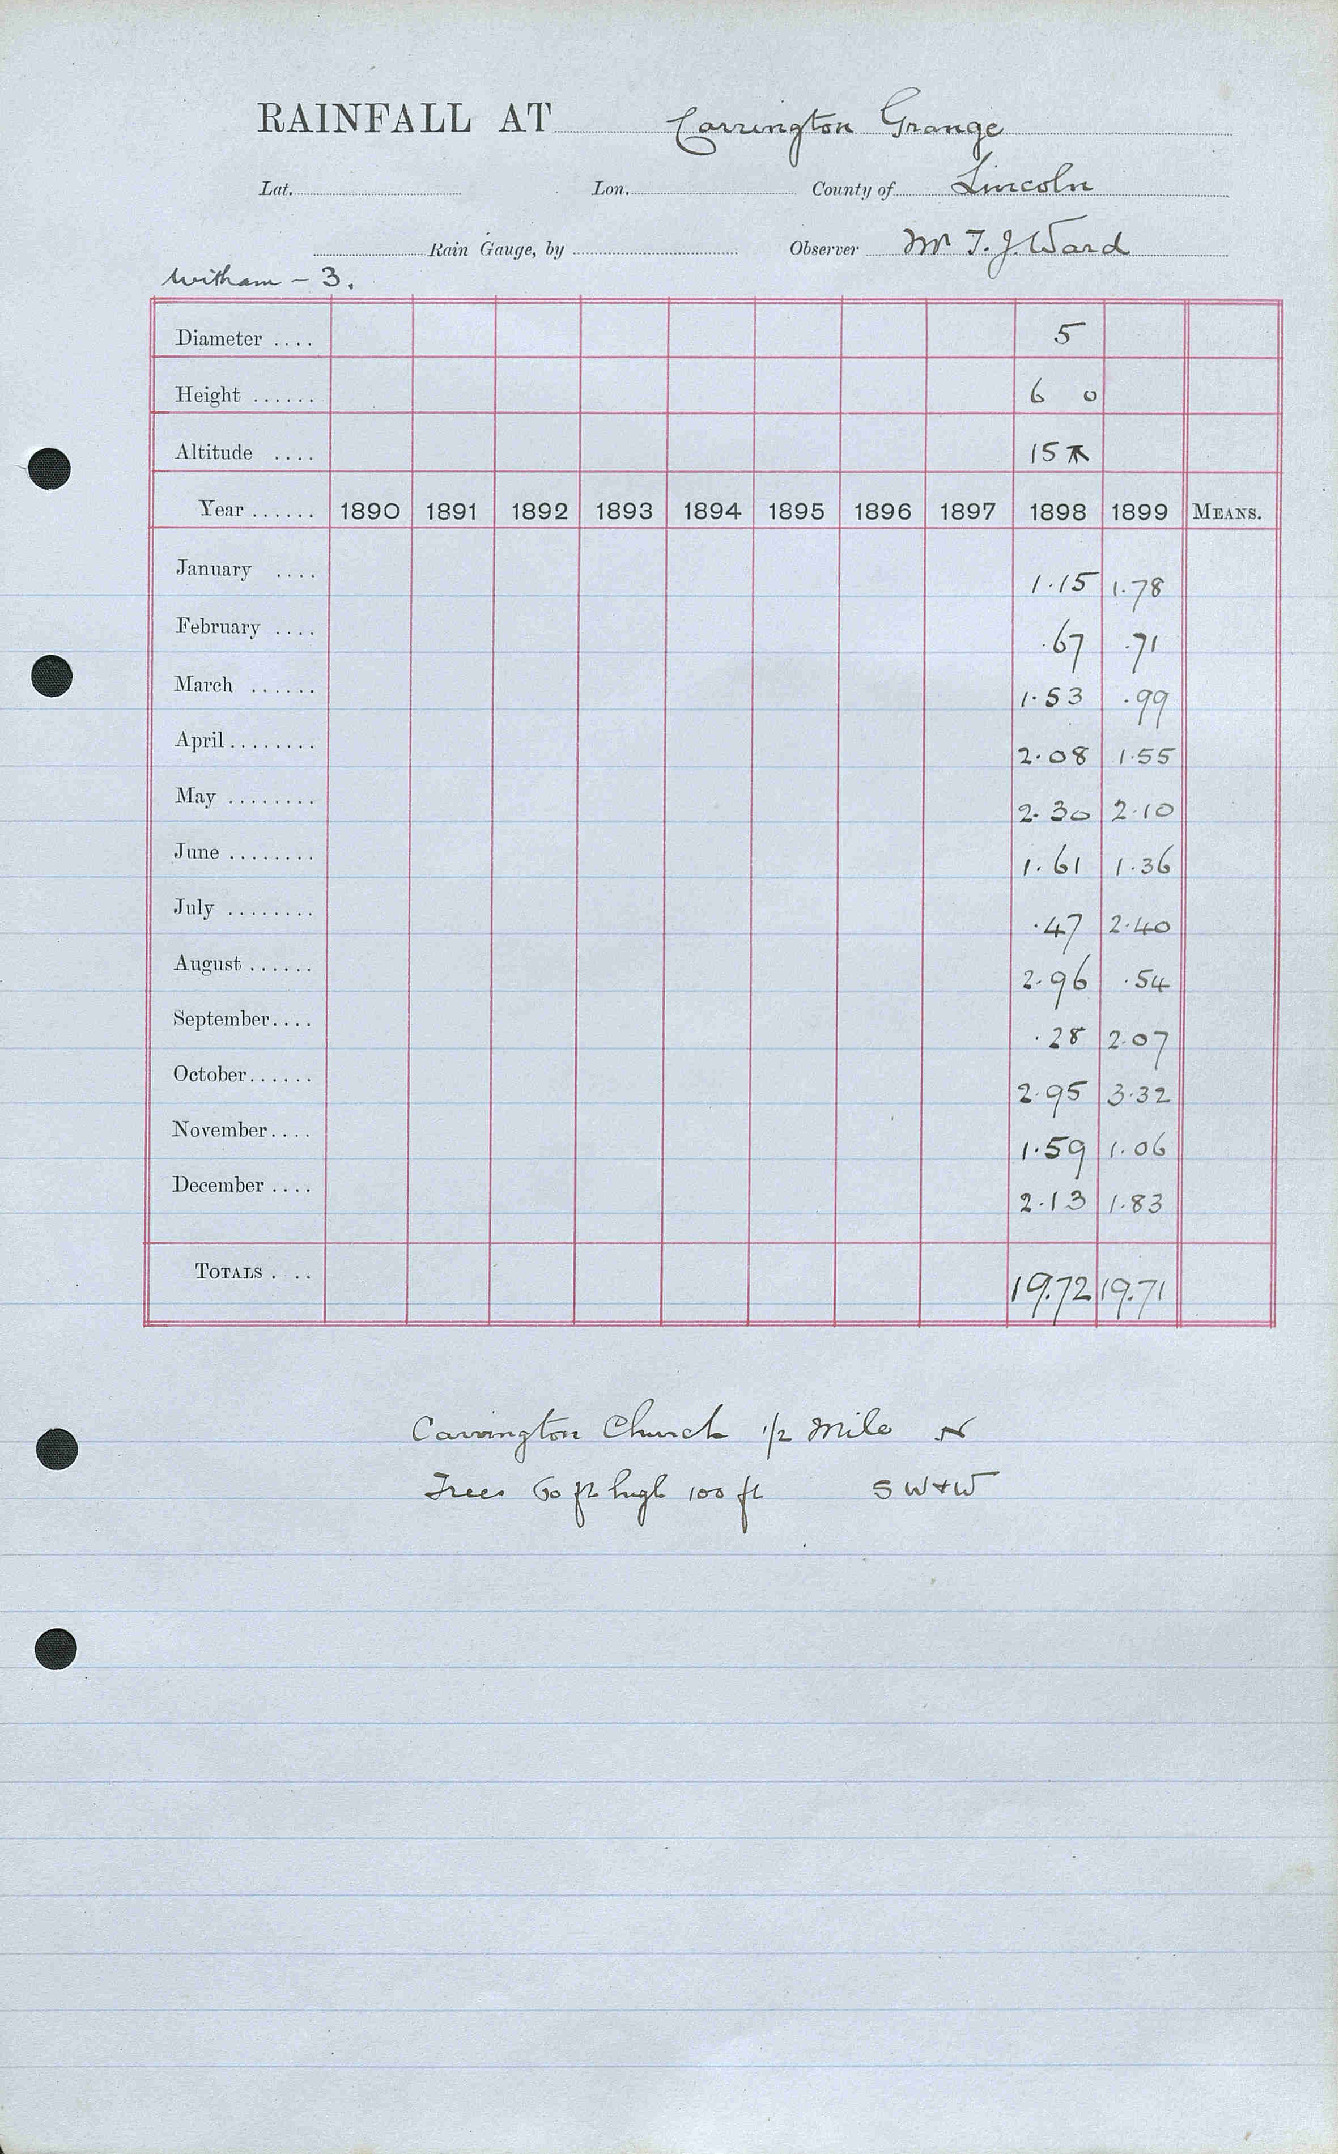 RAINFALL AT Carrington Grange
Lat. Lon. County of Lincoln
Rain Gauge, by Observer Mr T. J. Ward
Witham - 3.
Diameter .... 5
Height ...... 6 0
Altitude .... 15
Year ...... 1890 1891 1892 1893 1894 1895 1896 1897 1898 1899 MEANS.
January .... 1.15 1.78
February .... .67 .71
March ...... 1.53 .99
April ........ 2.08 1.55
May ........ 2.30 2.10
June ........ 1.61 1.36
July ........ .47 2.40
August ...... 2.96 .54
September .... .28 2.07
October ...... 2.95 3.32
November .... 1.59 1.06
December .... 2.13 1.83
TOTALS .... 19.72 19.71
Carrington Church 1/2 Mile N
Trees 60 ft high 100 ft S W + W